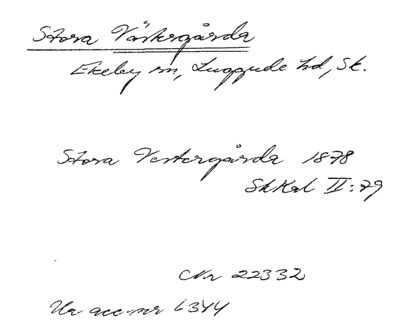 Stora Västergårda
Ekeby sn, Luggude hd, Sk.
Stora Vestergårda 1878
SkKal II:79
CNr 22332
Ur acc-nr 6344